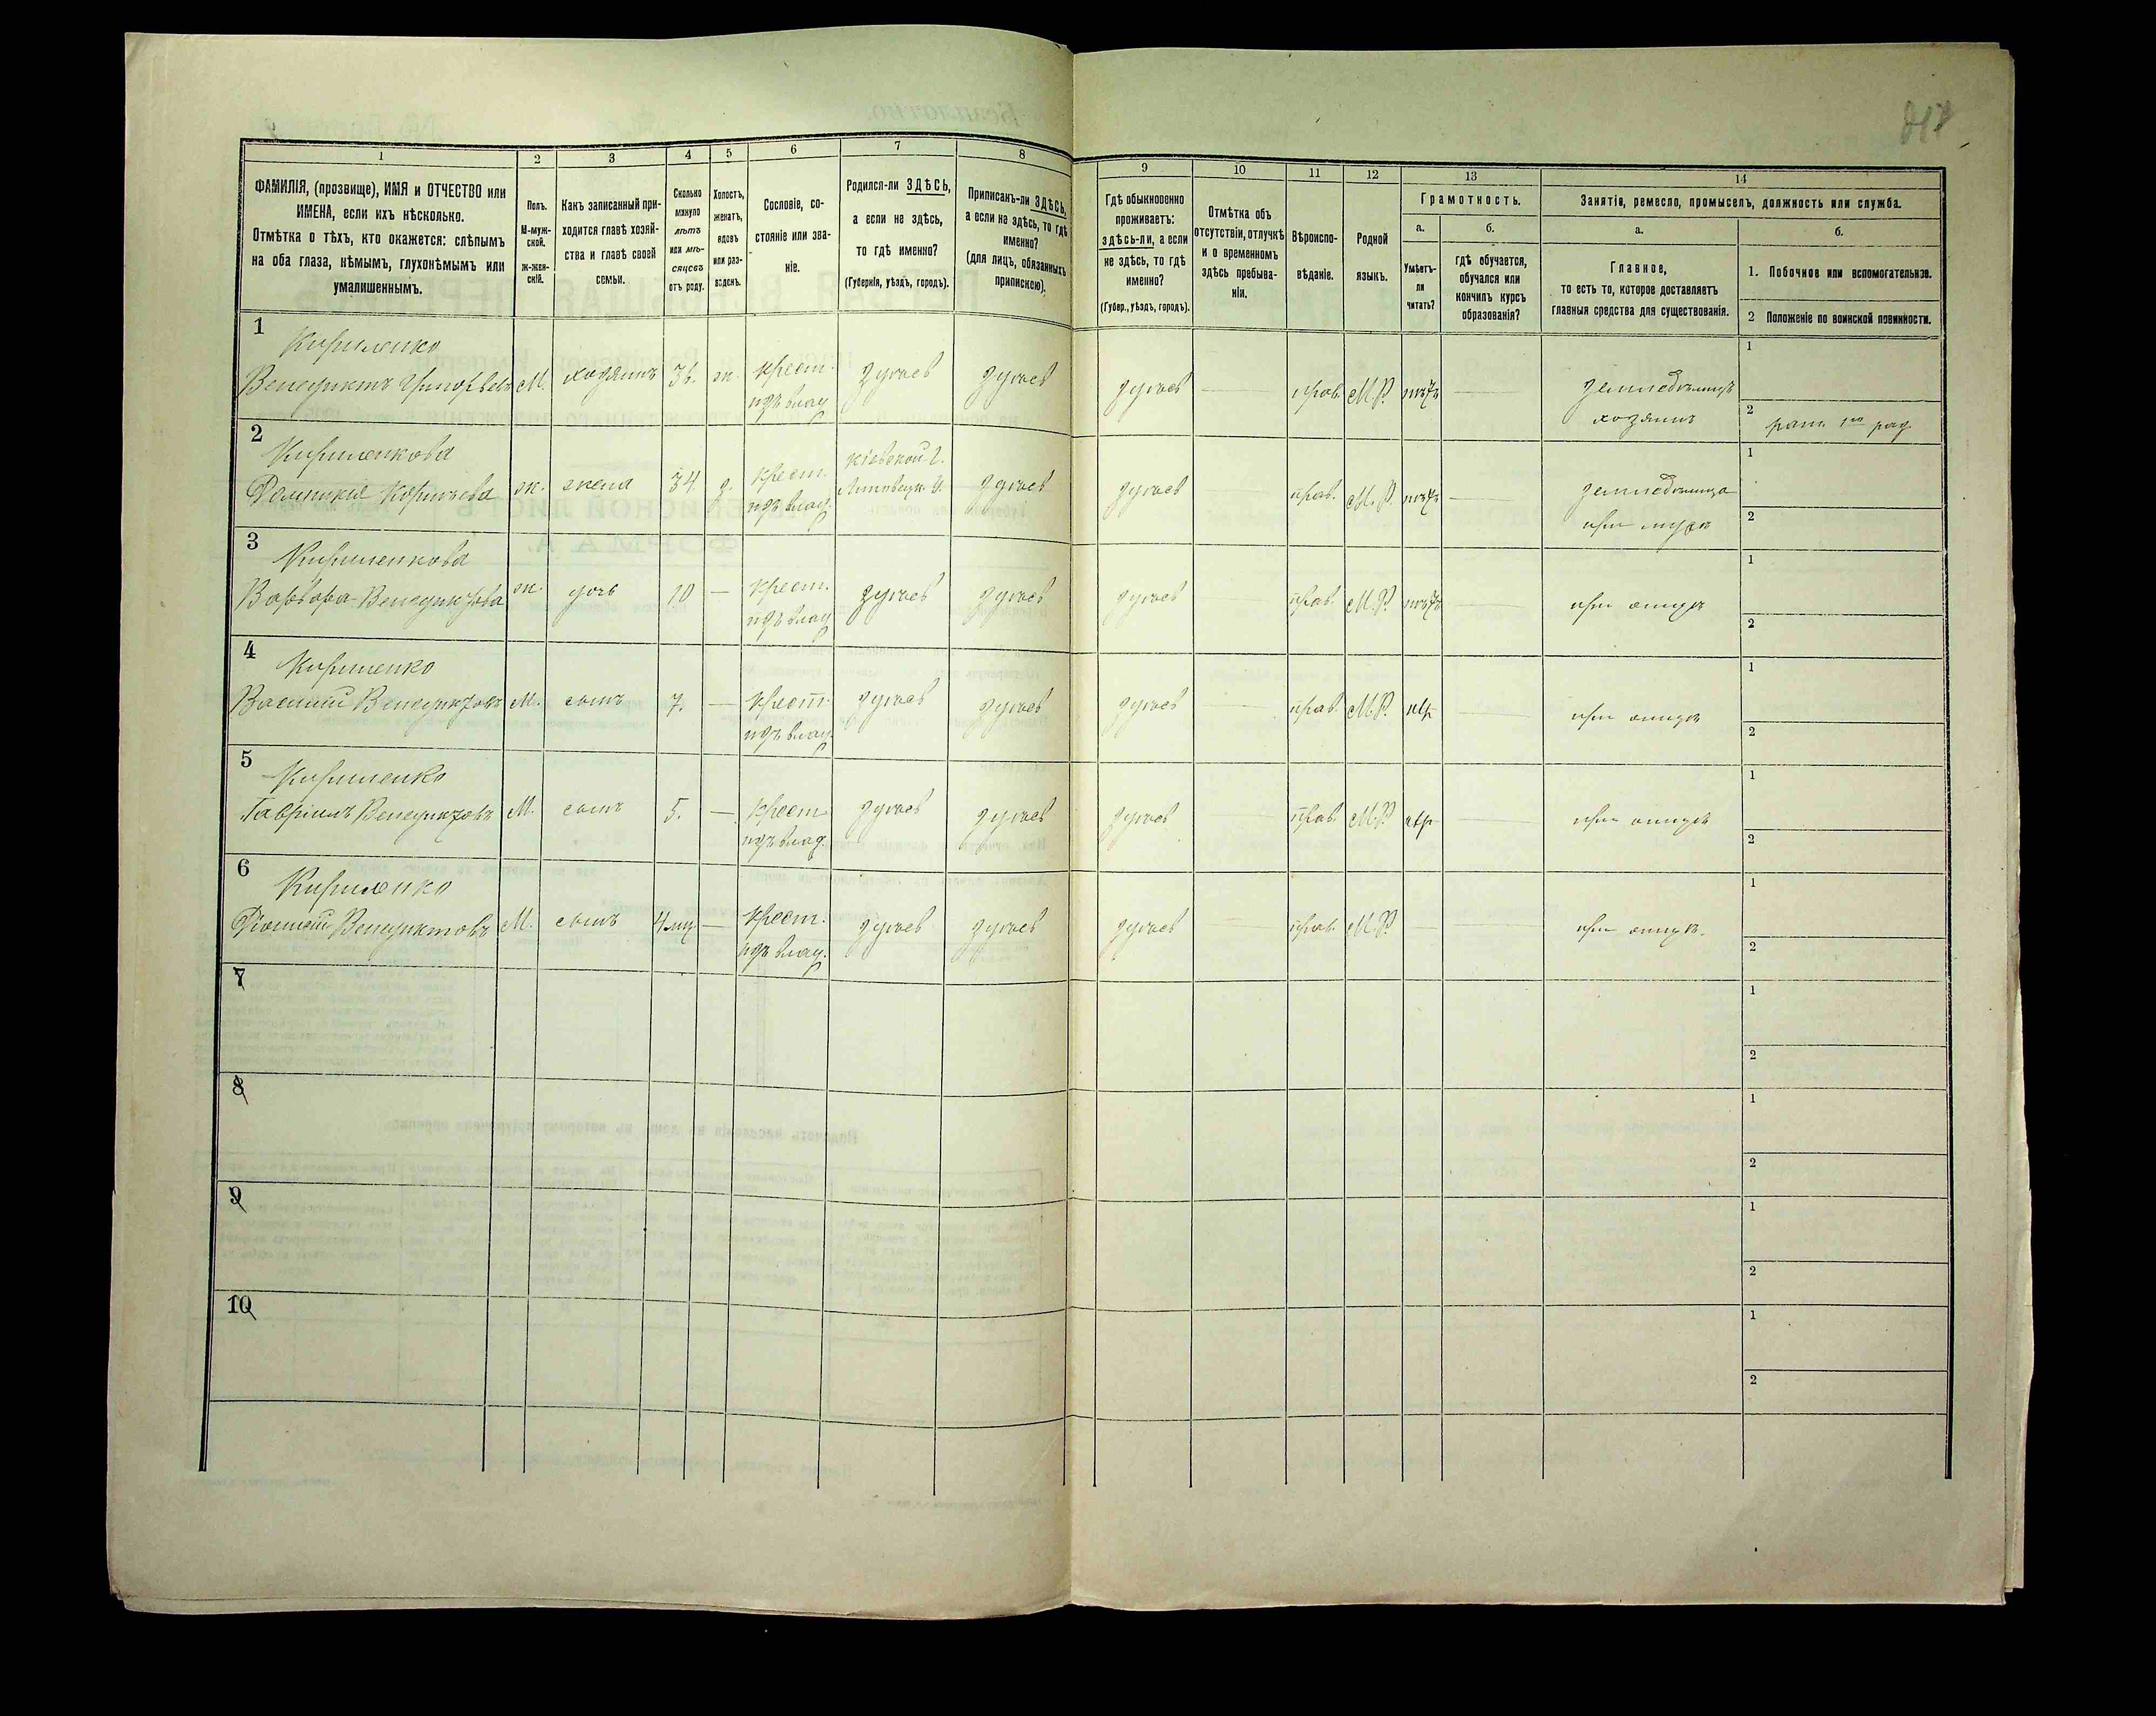 1 2 3 4 5 6 7 8 9 10 11 12 13 14
ФАМИЛІЯ, (прозвище), ИМЯ и ОТЧЕСТВО или
ИМЕНА, если ихъ нѣсколько.
Отмѣтка о тѣхъ, кто окажется: слѣпымъ
на оба глаза, нѣмымъ, глухонѣмымъ или
умалишеннымъ.
Полъ.
М-муж-
ской.
ж-жен-
скій.
Какъ записанный при-
ходится главѣ хозяй-
ства и главѣ своей
семьи.
Сколько
минуло
лѣтъ
или мѣ-
сяцевъ
отъ роду.
Холостъ,
женатъ,
вдовъ
или раз-
веденъ.
Сословіе, со-
стояніе или зва-
ніе.
Родился-ли ЗДѢСЬ,
а если не здѣсь,
то гдѣ именно?
(Губернія, уѣздъ, городъ).
Приписанъ-ли ЗДѢСЬ,
а если не здѣсь, то гдѣ
именно?
(для лицъ, обязанныхъ
припискою).
Гдѣ обыкновенно
проживаетъ:
здѣсь-ли, а если
не здѣсь, то гдѣ
именно?
(Губер., уѣздъ, городъ).
Отмѣтка объ
отсутствіи, отлучкѣ
и о временномъ
здѣсь пребыва-
ніи.
Вѣроиспо-
вѣданіе.
Родной
языкъ.
Грамотность.
а.
Умѣетъ-
ли
читать?
б.
гдѣ обучается,
обучался или
кончилъ курсъ
образованія?
Занятіе, ремесло, промыселъ, должность или служба.
а.
Главное,
то есть то, которое доставляетъ
главныя средства для существованія.
б.
1. Побочное или вспомогательное.
2 Положеніе по воинской повинности.
1
Кириленко
Венедиктъ Григорьевъ М. хозяинъ 36. ж. крест. здѣсь здѣсь здѣсь прав. М.Р. нѣтъ земледѣлецъ 1
изъ влад. хозяинъ 2 рат. 1го раз.
2
Кириленкова Кіевской г.
ж. жена 34 з. крест. Липовецк. у. здѣсь здѣсь прав. М.Р. нѣтъ 1
изъ влад. при мужѣ 2
3
Кириленкова
Варвара Венедиктова ж. дочь 10 — крест. здѣсь здѣсь здѣсь прав. М.Р. нѣтъ при отцѣ 1
изъ влад. 2
4
Кириленко
Василій Венедиктовъ М. сынъ 7. — крест. здѣсь здѣсь здѣсь прав. М.Р. при отцѣ 1
изъ влад. 2
5
Кириленко
Гавріилъ Венедиктовъ М. сынъ 5. — крест. здѣсь здѣсь здѣсь прав. М.Р. при отцѣ 1
изъ влад. 2
6
Кириленко
Венедиктовъ М. сынъ 4 мц — крест. здѣсь здѣсь здѣсь прав. М.Р. при отцѣ. 1
изъ влад. 2
7 1
2
8 1
2
9 1
2
10 1
2